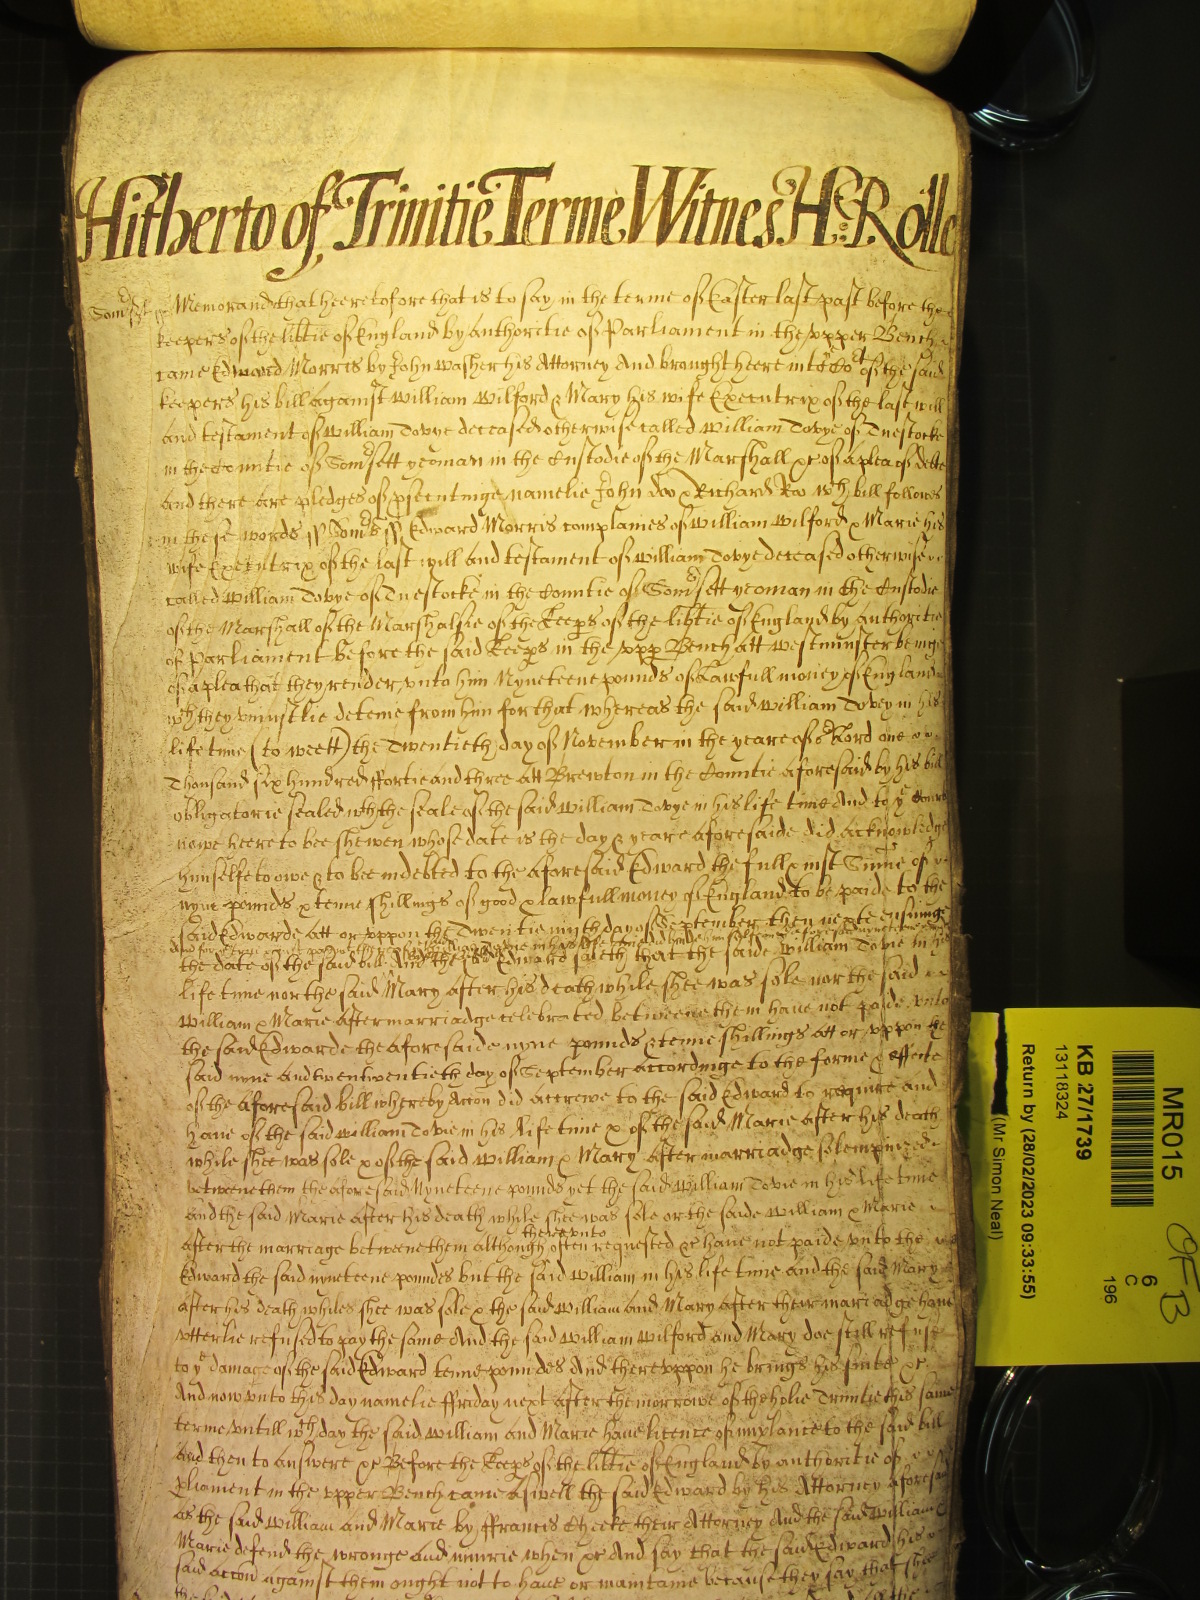 Hitherto of Trinitie Terme Witnes H: Rolle
Somset ss Memorand that heeretofore that is to say in the terme of Easter last past before the
keepers of the libtie of England by authoritie of Parliament in the vpper Bench
came Edward Morris by John Washer his Attorney And brought heere into the Cort of the said
keepers his bill against William Wilford & Mary his wife Executrix of the last will
and testament of William Dovye deceased otherwise called William Dovye of
in the Countie of Somsett yeoman in the Custodie of the Marshall &c of a plea of debte
And there are pledges of psecutinge namelie John doo & Richard Roo wch bill followes
in these words ss Soms ss Edward Morris complaines of William Wilford & Marie his
wife Executrix of the last will and testament of William Dovye deceased otherwise
called William Dovye of in the Countie of Somsett yeoman in the Custodie
of the Marshall of the Marshalsie of the Keeps of the libtie of England by authoritie
of Parliament before the said Keeps in the vpp Bench att Westminster beinge
of a plea that they render vnto him Nyneteene pounds of Lawfull money of England
wch they vniustlie deteine from him for that whereas the said William Dovey in his
life time (to weett) the Twentieth day of November in the yeare of or Lord one
Thousand six hundred ffortie and three att Brewton in the Countie aforesaid by his bill
obligatorie sealed wth the seale of the said William Dovye in his life time And to ye Court
nowe heere to bee shewen whose date is the day & yeare aforesaide did acknowledge
himselfe to owe & to bee indebted to the aforesaid Edward the full & iust Summe of
nyne pounds & tenne shillings of good & lawfull money of England to be paide to the
said Edwarde att or vppon the Twentie ninth day of September then nexte ensuinge
the date of the said bill And the said Edward saieth that the saide William Dovie in his
life time nor the said Mary after his death while shee was sole nor the said
William & Marie after marriadge celebrated betweene them have not paide vnto
the said Edwarde the aforesaide nyne pounds & tenne shillings att or vppon the
said nyne and twentwentieth day of September accordinge to the forme & effecte
of the aforesaid bill whereby Accon did accrewe to the said Edward to require and
haue of the said William Dovie in his life time & of the said Marie after his death
while shee was sole & of the said William & Mary after marriadge solempnized
betweene them the aforesaid Nyneteene pounds yet the said William Dovie in his life time
and the said Marie after his death while shee was sole or the saide William & Marie
after the marriage betweene them although therevnto often requested &c haue not paide vnto the
Edward the said nyneteene poundes but the said William in his life time and the said Mary
after his death whiles shee was sole & the said William and Mary after their mariadge haue
vtterlie refused to pay the same And the said William Wilford and Mary doe still refuse
to ye damage of the said Edward tenne poundes And therevppon he brings his suite &c
And now vnto this day namelie ffriday next after the morrowe of the holie Trinitie this same
terme vntill wch day the said William and Marie haue licence of implance to the said bill
And then to answere &c Before the Keeps of the libtie of England by authoritie of
pliament in the vpper Bench came aswell the said Edward by his Attorney aforesaid
as the said William and Marie by ffrancis Cheeke their Attorney And the said William &
Marie defend the wronge and iniurie when &c And say that the said Edward his
said accon against them ought not to haue or maintaine because they say that
MR015
6
C
196
KB 27/1739
13118324
Return by (28/02/2023 09:33:55)
(Mr Simon Neal)